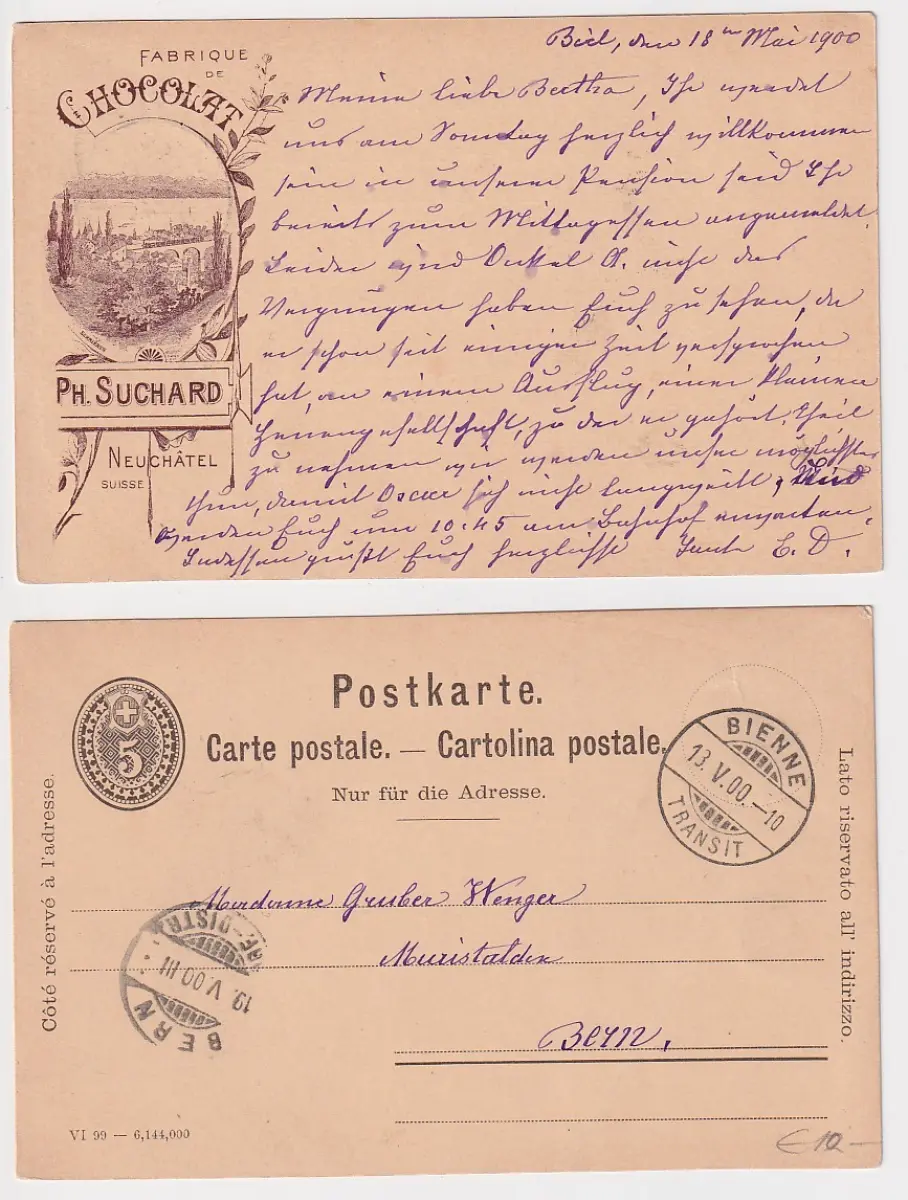 FABRIQUE
DE
CHOCOLAT
PH. SUCHARD
NEUCHÂTEL
SUISSE
Biel, den 18ten Mai 1900
Meine liebe Bertha, Ihr werdet
uns am Sonntag herzlich willkommen
sein in unserer Pension seid Ihr
bereits zum Mittagessen angemeldet.
Leider wird Onkel A. nicht das
Vergnügen haben Euch zu sehen, da
er schon seit einiger Zeit versprochen
hat, an einem Ausflug, einer kleinen
Herrengesellschaft, zu der er gehört, theil
zu nehmen wir werden unser möglichstes
thun, damit Oscar sich nicht langweilt,
werden Euch um 10.45 am Bahnhof erwarten.
Indessen grüßt Euch herzlichst Tante E. D.
Postkarte.
Carte postale. — Cartolina postale.
Nur für die Adresse.
Côté réservé à l'adresse.
Lato riservato all' indirizzo.
5
BIENNE
V.00.—10
TRANSIT
Madame Gruber Wenger
Muristalden
Bern.
BERN
19. V. 00 III
DISTR.
VI 99 — 6,144,000
€ 10 —